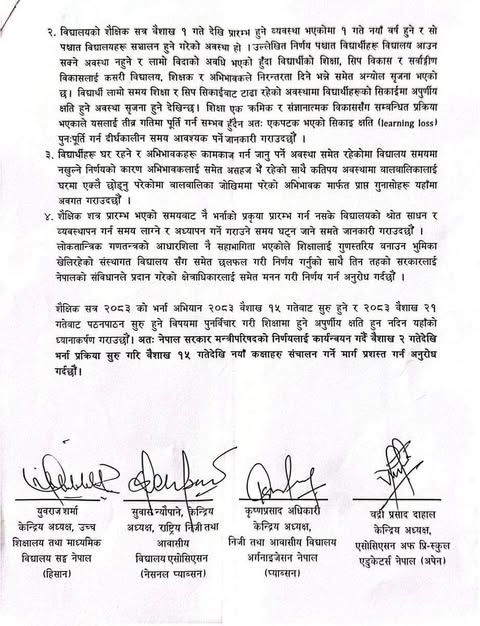 २. विद्यालयको शैक्षिक सत्र वैशाख १ गते देखि प्रारम्भ हुने व्यवस्था भएकोमा १ गते नयाँ वर्ष हुने र सो
पश्चात विद्यालयहरू सञ्चालन हुने गरेको अवस्था हो । उल्लेखित निर्णय पश्चात विद्यार्थीहरू विद्यालय आउन
सक्ने अवस्था नहुने र लामो विदाको अवधि भएको हुँदा विद्यार्थीको शिक्षा, सिप विकास र सर्वाङ्गीण
विकासलाई कसरी विद्यालय, शिक्षक र अभिभावकले निरन्तरता दिने भन्ने समेत अन्योल सृजना भएको
छ। विद्यार्थी लामो समय शिक्षा र सिप सिकाईबाट टाढा रहेको अवस्थामा विद्यार्थीहरूको सिकाईमा अपुर्णीय
क्षति हुने अवस्था सृजना हुने देखिन्छ। शिक्षा एक क्रमिक र संज्ञानात्मक विकाससँग सम्बन्धित प्रक्रिया
भएकाले यसलाई तीव्र गतिमा पूर्ति गर्न सम्भव हुँदैन अतः एकपटक भएको सिकाइ क्षति (learning loss)
पुनःपूर्ति गर्न दीर्घकालीन समय आवश्यक पर्ने जानकारी गराउदछौँ ।
३. विद्यार्थीहरू घर रहने र अभिभावकहरू कामकाज गर्न जानु पर्ने अवस्था समेत रहेकोमा विद्यालय समयमा
नखुल्ने निर्णयको कारण अभिभावकलाई समेत असहज भै रहेको साथै कतिपय अवस्थामा बालबालिकालाई
घरमा एक्लै छोड्नु परेकोमा बालबालिका जोखिममा परेको अभिभावक मार्फत प्राप्त गुनासोहरू यहाँमा
अवगत गराउदछौं ।
४. शैक्षिक शत्र प्रारम्भ भएको समयबाट नै भर्नाको प्रकृया प्रारम्भ गर्न नसके विद्यालयको श्रोत साधन र
व्यवस्थापन गर्न समय लाग्ने र अध्यापन गर्ने गराउने समय घट्न जाने समते जानकारी गराउदछौं ।
लोकतान्त्रिक गणतन्त्रको आधारशिला नै सहभागिता भएकोले शिक्षालाई गुणस्तरिय बनाउन भुमिका
खेलिरहेको संस्थागत विद्यालय सँग समेत छलफल गरी निर्णय गर्नुको साथै तिन तहको सरकारलाई
नेपालको संविधानले प्रदान गरेको क्षेत्राधिकारलाई समेत मनन गरी निर्णय गर्न अनुरोध गर्दछौं ।
शैक्षिक सत्र २०८३ को भर्ना अभियान २०८३ वैशाख १५ गतेबाट सुरु हुने र २०८३ वैशाख २१
गतेबाट पठनपाठन सुरु हुने विषयमा पुनर्विचार गरी शिक्षामा हुने अपुर्णीय क्षति हुन नदिन यहाँको
ध्यानाकर्षण गराउछौं। अतः नेपाल सरकार मन्त्रीपरिषदको निर्णयलाई कार्यन्वयन गर्दै वैशाख २ गतेदेखि
भर्ना प्रक्रिया सुरु गरि वैशाख १५ गतेदेखि नयाँ कक्षाहरु संचालन गर्ने मार्ग प्रशस्त गर्न अनुरोध
गर्दछौँ।
युवराज शर्मा
केन्द्रिय अध्यक्ष, उच्च
शिक्षालय तथा माध्यमिक
विद्यालय सङ्घ नेपाल
(हिसान)
सुवास न्यौपाने, केन्द्रिय
अध्यक्ष, राष्ट्रिय निजी तथा
आवासीय
विद्यालय एसोसिएसन
(नेसनल प्याब्सन)
कृष्णप्रसाद अधिकारी
केन्द्रिय अध्यक्ष,
निजी तथा आवासीय विद्यालय
अर्गनाइजेसन नेपाल
(प्याब्सन)
बद्री प्रसाद दाहाल
केन्द्रिय अध्यक्ष,
एसोसिएसन अफ प्रि-स्कुल
एडुकेटर्स नेपाल (अपेन)